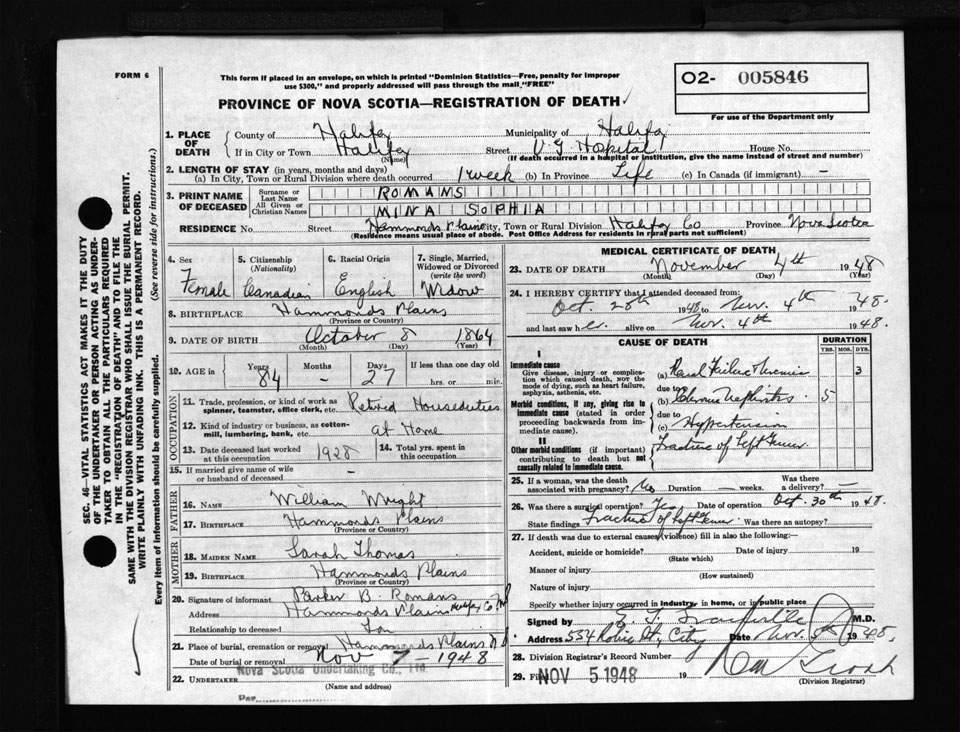 FORM 6
This form if placed in an envelope, on which is printed "Dominion Statistics—Free, penalty for improper
use $300," and properly addressed will pass through the mail "FREE"
O2- 005846
PROVINCE OF NOVA SCOTIA—REGISTRATION OF DEATH
For use of the Department only
1. PLACE OF DEATH County of Halifax Municipality of Halifax
If in City or Town Halifax (Name) Street V G Hospital House No.
(If death occurred in a hospital or institution, give the name instead of street and number)
2. LENGTH OF STAY (in years, months and days)
(a) In City, Town or Rural Division where death occurred 1 week (b) In Province Life (c) In Canada (if immigrant) —
3. PRINT NAME OF DECEASED Surname or Last Name ROMANS
All Given or Christian Names MINA SOPHIA
RESIDENCE No. Street Hammonds Plains City, Town or Rural Division Halifax Co Province Nova Scotia
(Residence means usual place of abode. Post Office Address for residents in rural parts not sufficient)
4. Sex Female
5. Citizenship (Nationality) Canadian
6. Racial Origin English
7. Single, Married, Widowed or Divorced (write the word) Widow
8. BIRTHPLACE Hammonds Plains
(Province or Country)
9. DATE OF BIRTH October 8 1864
(Month) (Day) (Year)
10. AGE in Years 84 Months — Days 27 If less than one day old
hrs. or min.
OCCUPATION
11. Trade, profession, or kind of work as spinner, teamster, office clerk, etc. Retired Houseduties
12. Kind of industry or business, as cotton-mill, lumbering, bank, etc. at Home
13. Date deceased last worked at this occupation 1928
14. Total yrs. spent in this occupation
15. If married give name of wife or husband of deceased —
FATHER
16. NAME William Wright
17. BIRTHPLACE Hammonds Plains
(Province or Country)
MOTHER
18. MAIDEN NAME Sarah Thomas
19. BIRTHPLACE Hammonds Plains
(Province or Country)
20. Signature of informant Parker B. Romans
Address Hammonds Plains Halifax Co NS
Relationship to deceased Son
21. Place of burial, cremation or removal Hammonds Plains N S
Date of burial or removal NOV 7 - 1948
22. UNDERTAKER Nova Scotia Undertaking Co., Ltd
(Name and address)
Per
MEDICAL CERTIFICATE OF DEATH
23. DATE OF DEATH November 4th 1948
(Month) (Day) (Year)
24. I HEREBY CERTIFY that I attended deceased from:
Oct. 28th 1948 to Nov. 4th 1948.
and last saw her alive on Nov. 4th 1948.
CAUSE OF DEATH
DURATION
YRS. MOS. DYS.
I
Immediate cause
Give disease, injury or complication which caused death, not the mode of dying, such as heart failure, asphyxia, asthenia, etc.
(a) Renal Failure Uremia 3
due to
Morbid conditions, if any, giving rise to immediate cause (stated in order proceeding backwards from immediate cause).
(b) Chronic Nephritis 5
due to
(c) Hypertension
II
Other morbid conditions (if important) contributing to death but not causally related to immediate cause.
Fracture of Left Femur
25. If a woman, was the death associated with pregnancy? No Duration — weeks. Was there a delivery? —
26. Was there a surgical operation? Yes Date of operation Oct. 30th 1948.
State findings Fracture of Left Femur Was there an autopsy?
27. If death was due to external causes (violence) fill in also the following:—
Accident, suicide or homicide? Date of injury 19
(State which)
Manner of injury
(How sustained)
Nature of injury
Specify whether injury occurred in industry, in home, or in public place
Signed by M.D.
Address 534 Robie St, City Date Nov. 5th 1948.
28. Division Registrar's Record Number
29. Filed NOV 5 1948 19
(Division Registrar)
SEC. 46—VITAL STATISTICS ACT MAKES IT THE DUTY
OF THE UNDERTAKER OR PERSON ACTING AS UNDERTAKER
TO OBTAIN ALL THE PARTICULARS REQUIRED
IN THE "REGISTRATION OF DEATH" AND TO FILE THE
SAME WITH THE DIVISION REGISTRAR WHO SHALL ISSUE THE BURIAL PERMIT.
WRITE PLAINLY WITH UNFADING INK. THIS IS A PERMANENT RECORD.
Every item of information should be carefully supplied. (See reverse side for instructions.)